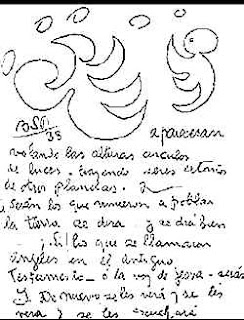 BSP.
38
apareceran
volando las alturas circulos
de luces. trayendo seres
de otros planetas.
Serán los que vinieron a poblar
la tierra se dira. y se dirá bien
¡Si! los que se llamaron
angeles en el Antiguo
Testamento - ó la voz de Jeova -
De nuevo se les verá y se les
vera y se les escuchará